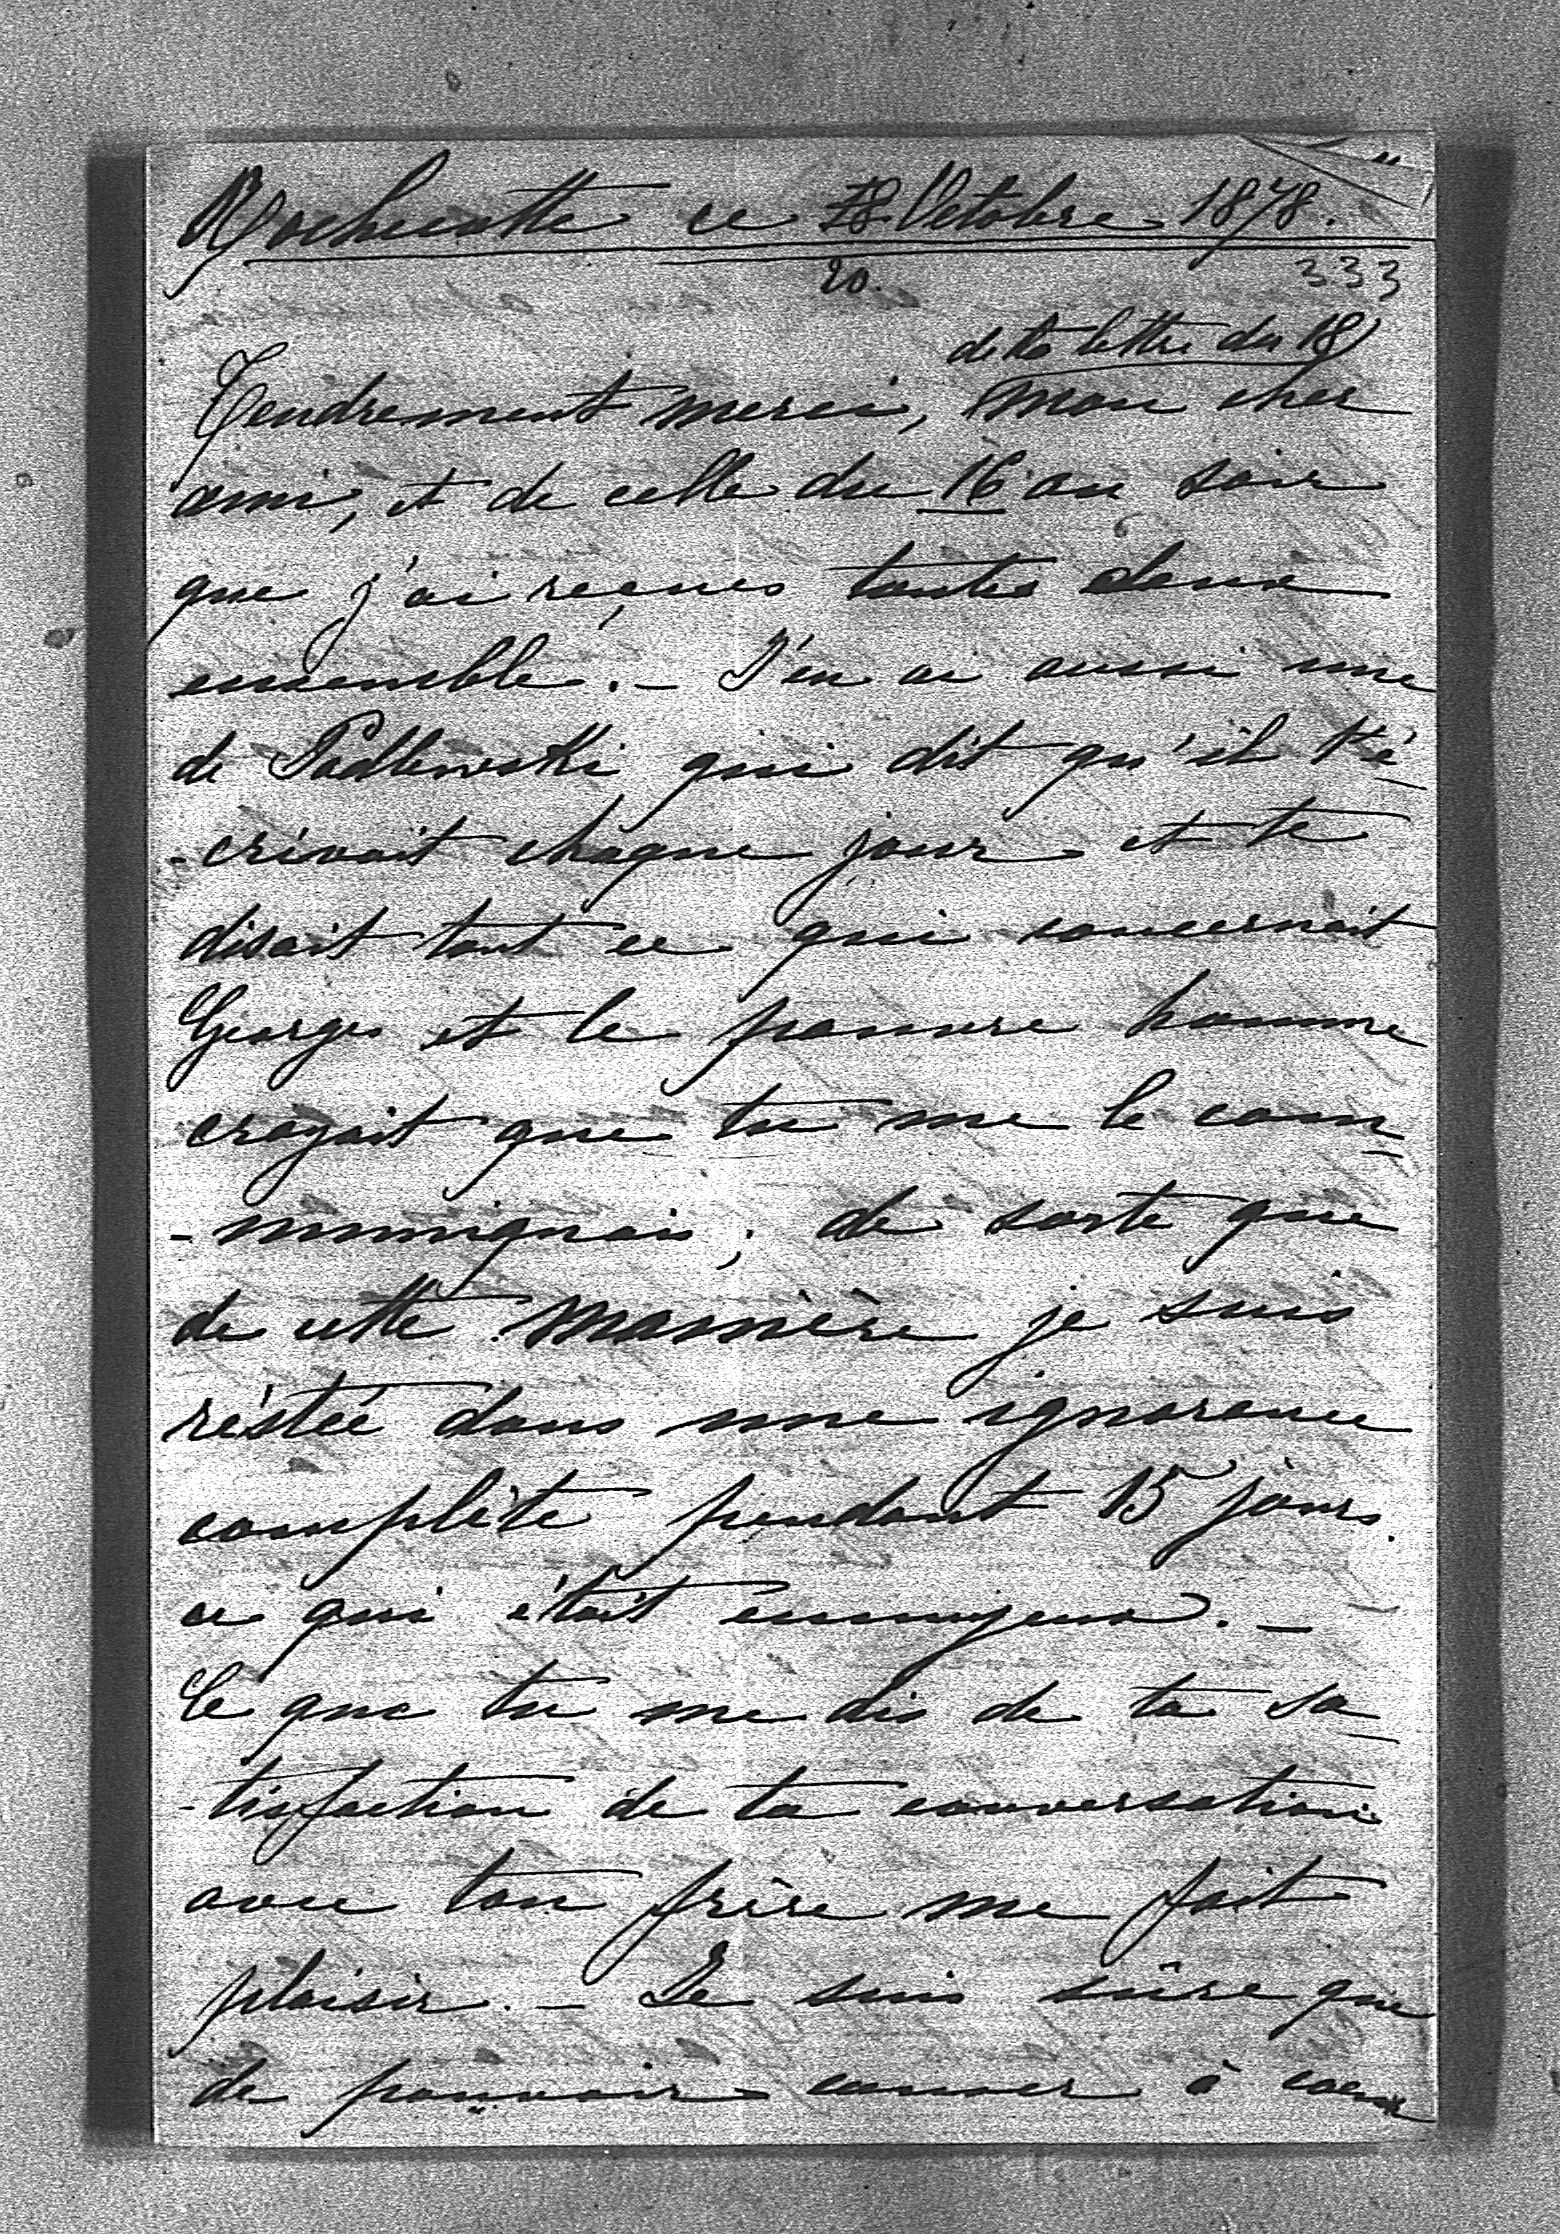 Rochecotte ce 18 Octobre 1878.
20.
333
de ta lettre du 18
Tendrement merci, mon cher
ami, et de celle du 16 au soir
que j'ai reçues toutes deux
ensemble. - J'en ai aussi une
de Padlewski qui dit qu'il t'é-
-crivait chaque jour et te
disait tout ce qui concernait
Georges et le pauvre homme
croyait que tu me le com-
-muniquais; de sorte que
de cette manière je suis
réstée dans une ignorance
complète pendant 15 jours.
ce qui était ennuyeux. -
Ce que tu me dis de ta sa-
-tisfaction de ta conversation
avec ton frère me fait
plaisir. - Je suis sûre que
de pouvoir causer à coeur